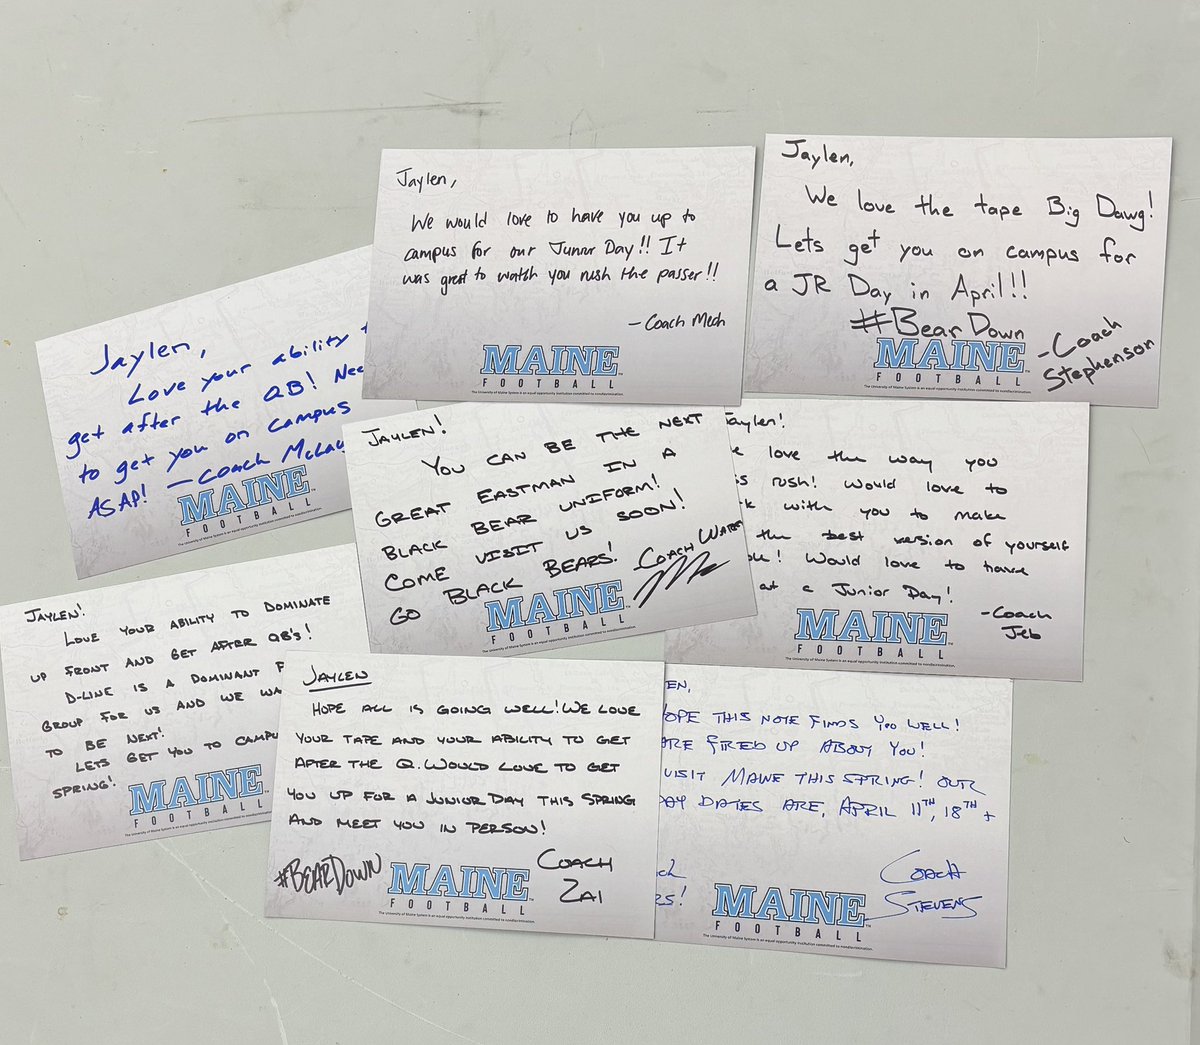 Jaylen,
We would love to have you up to
campus for our Junior Day!! It
was great to watch you rush the passer!!
- Coach Mech
MAINE
FOOTBALL
The University of Maine System is an equal opportunity institution committed to nondiscrimination.
Jaylen,
We love the tape Big Dawg!
Lets get you on campus for
a JR Day in April!!
#BearDown
- Coach
Stephenson
MAINE
FOOTBALL
The University of Maine System is an equal opportunity institution committed to nondiscrimination.
Jaylen,
Love your ability
get after the QB!
to get you on campus
ASAP! - Coach
MAINE
FOOTBALL
The University of Maine System is an equal opportunity institution committed to nondiscrimination.
JAYLEN!
YOU CAN BE THE NEXT
GREAT EASTMAN IN A
BLACK BEAR UNIFORM!
COME VISIT US SOON!
GO BLACK BEARS! COACH
MAINE
FOOTBALL
The University of Maine System is an equal opportunity institution committed to nondiscrimination.
Jaylen!
love the way you
rush! Would love to
with you to make
the best version of yourself
! Would love to have
at a Junior Day!
- Coach
Jeb
MAINE
FOOTBALL
The University of Maine System is an equal opportunity institution committed to nondiscrimination.
JAYLEN!
LOVE YOUR ABILITY TO DOMINATE
UP FRONT AND GET AFTER QB's!
D-LINE IS A DOMINANT
GROUP FOR US AND WE
TO BE NEXT!
LETS GET YOU TO
SPRING!
MAINE
FOOTBALL
The University of Maine System is an equal opportunity institution committed to nondiscrimination.
JAYLEN
HOPE ALL IS GOING WELL! WE LOVE
YOUR TAPE AND YOUR ABILITY TO GET
AFTER THE Q. WOULD LOVE TO GET
YOU UP FOR A JUNIOR DAY THIS SPRING
AND MEET YOU IN PERSON!
#BEARDOWN
COACH
ZAI
MAINE
FOOTBALL
The University of Maine System is an equal opportunity institution committed to nondiscrimination.
EN,
OPE THIS NOTE FINDS YOU WELL!
ARE FIRED UP ABOUT YOU!
VISIT MAINE THIS SPRING! OUR
DAY DATES ARE, APRIL 11TH, 18TH +
COACH
STEVENS
MAINE
FOOTBALL
The University of Maine System is an equal opportunity institution committed to nondiscrimination.